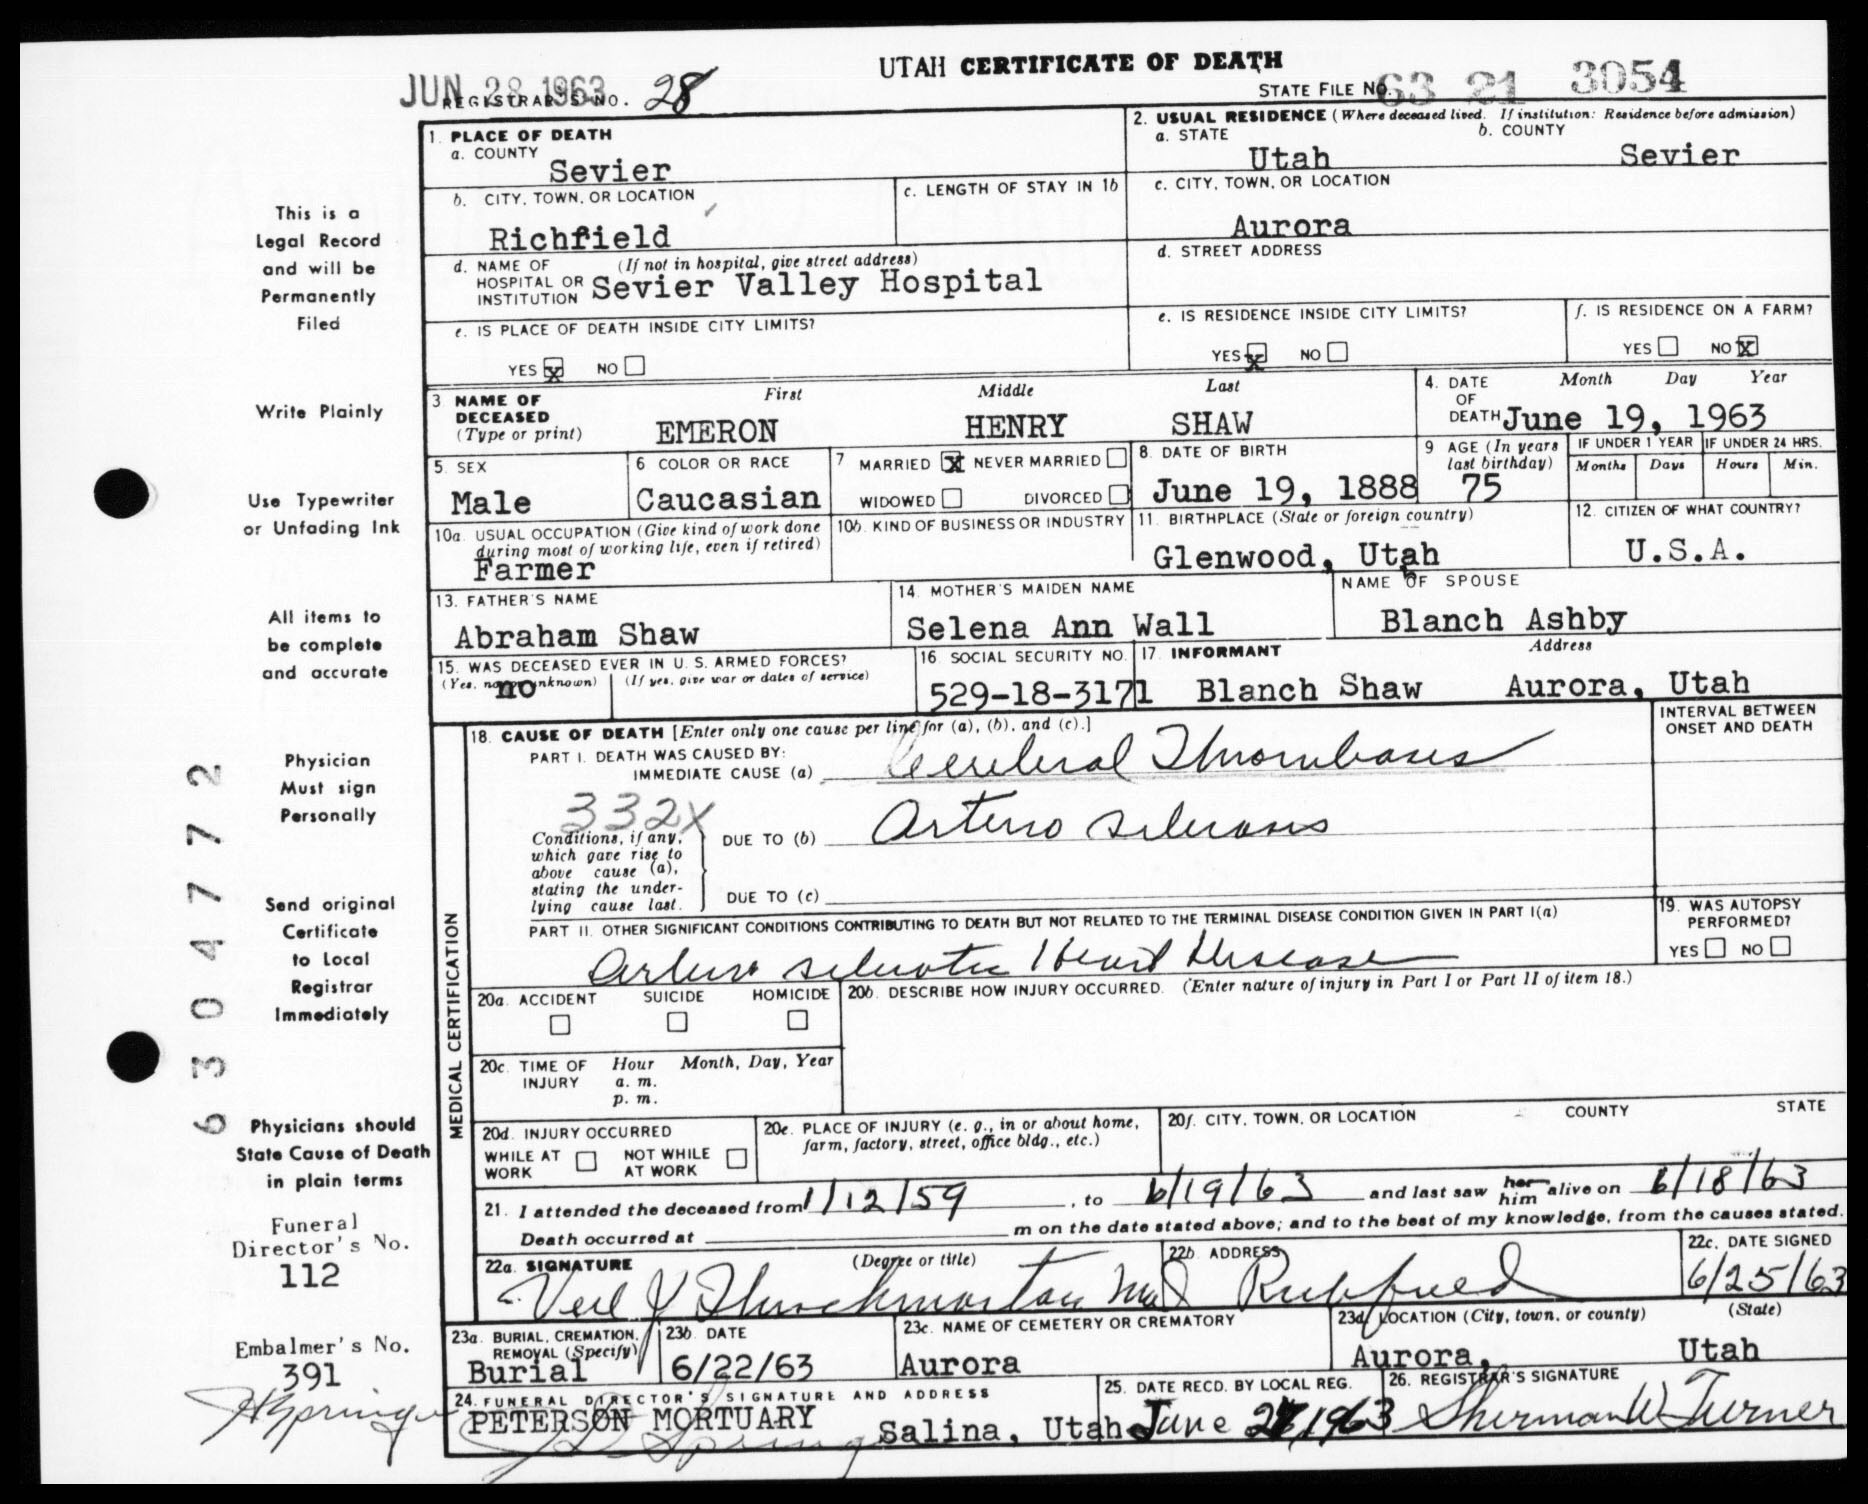 UTAH CERTIFICATE OF DEATH
JUN 28 1963
REGISTRAR'S NO. 28
STATE FILE NO. 63 21 3054
1. PLACE OF DEATH
a. COUNTY
Sevier
2. USUAL RESIDENCE (Where deceased lived. If institution: Residence before admission)
a. STATE
Utah
b. COUNTY
Sevier
b. CITY, TOWN, OR LOCATION
Richfield
c. LENGTH OF STAY IN 1b
c. CITY, TOWN, OR LOCATION
Aurora
d. NAME OF HOSPITAL OR INSTITUTION
(If not in hospital, give street address)
Sevier Valley Hospital
d. STREET ADDRESS
e. IS PLACE OF DEATH INSIDE CITY LIMITS?
YES X NO
e. IS RESIDENCE INSIDE CITY LIMITS?
YES X NO
f. IS RESIDENCE ON A FARM?
YES NO X
3 NAME OF DECEASED
(Type or print)
First Middle Last
EMERON HENRY SHAW
4. DATE OF DEATH
Month Day Year
June 19, 1963
5. SEX
Male
6 COLOR OR RACE
Caucasian
7 MARRIED X NEVER MARRIED
WIDOWED DIVORCED
8. DATE OF BIRTH
June 19, 1888
9 AGE (In years last birthday)
75
IF UNDER 1 YEAR
Months Days
IF UNDER 24 HRS.
Hours Min.
10a. USUAL OCCUPATION (Give kind of work done during most of working life, even if retired)
Farmer
10b. KIND OF BUSINESS OR INDUSTRY
11. BIRTHPLACE (State or foreign country)
Glenwood, Utah
12. CITIZEN OF WHAT COUNTRY?
U.S.A.
13. FATHER'S NAME
Abraham Shaw
14. MOTHER'S MAIDEN NAME
Selena Ann Wall
NAME OF SPOUSE
Blanch Ashby
15. WAS DECEASED EVER IN U. S. ARMED FORCES?
(Yes, no, or unknown) (If yes, give war or dates of service)
no
16. SOCIAL SECURITY NO.
529-18-3171
17. INFORMANT Address
Blanch Shaw Aurora, Utah
MEDICAL CERTIFICATION
18. CAUSE OF DEATH [Enter only one cause per line for (a), (b), and (c).]
INTERVAL BETWEEN ONSET AND DEATH
PART I. DEATH WAS CAUSED BY:
IMMEDIATE CAUSE (a) Cerebral Thrombosis
332X
Conditions, if any, which gave rise to above cause (a), stating the underlying cause last.
DUE TO (b) Arterio sclerosis
DUE TO (c)
PART II. OTHER SIGNIFICANT CONDITIONS CONTRIBUTING TO DEATH BUT NOT RELATED TO THE TERMINAL DISEASE CONDITION GIVEN IN PART I(a)
Arterio sclerotic Heart Disease
19. WAS AUTOPSY PERFORMED?
YES NO
20a. ACCIDENT SUICIDE HOMICIDE
20b. DESCRIBE HOW INJURY OCCURRED. (Enter nature of injury in Part I or Part II of item 18.)
20c. TIME OF INJURY
Hour Month, Day, Year
a. m.
p. m.
20d. INJURY OCCURRED
WHILE AT WORK NOT WHILE AT WORK
20e. PLACE OF INJURY (e. g., in or about home, farm, factory, street, office bldg., etc.)
20f. CITY, TOWN, OR LOCATION COUNTY STATE
21. I attended the deceased from 1/12/59, to 6/19/63 and last saw her him alive on 6/18/63
Death occurred at m on the date stated above; and to the best of my knowledge, from the causes stated.
22a. SIGNATURE (Degree or title)
Veil J Throckmorton MD
22b. ADDRESS
Richfield
22c. DATE SIGNED
6/25/63
23a. BURIAL, CREMATION, REMOVAL (Specify)
Burial
23b. DATE
6/22/63
23c. NAME OF CEMETERY OR CREMATORY
Aurora
23d. LOCATION (City, town, or county) (State)
Aurora, Utah
24. FUNERAL DIRECTOR'S SIGNATURE AND ADDRESS
PETERSON MORTUARY Salina, Utah
25. DATE RECD. BY LOCAL REG.
June 1963
26. REGISTRAR'S SIGNATURE
Sherman W Turner
This is a
Legal Record
and will be
Permanently
Filed
Write Plainly
Use Typewriter
or Unfading Ink
All items to
be complete
and accurate
Physician
Must sign
Personally
Send original
Certificate
to Local
Registrar
Immediately
Physicians should
State Cause of Death
in plain terms
6304772
Funeral
Director's No.
112
Embalmer's No.
391